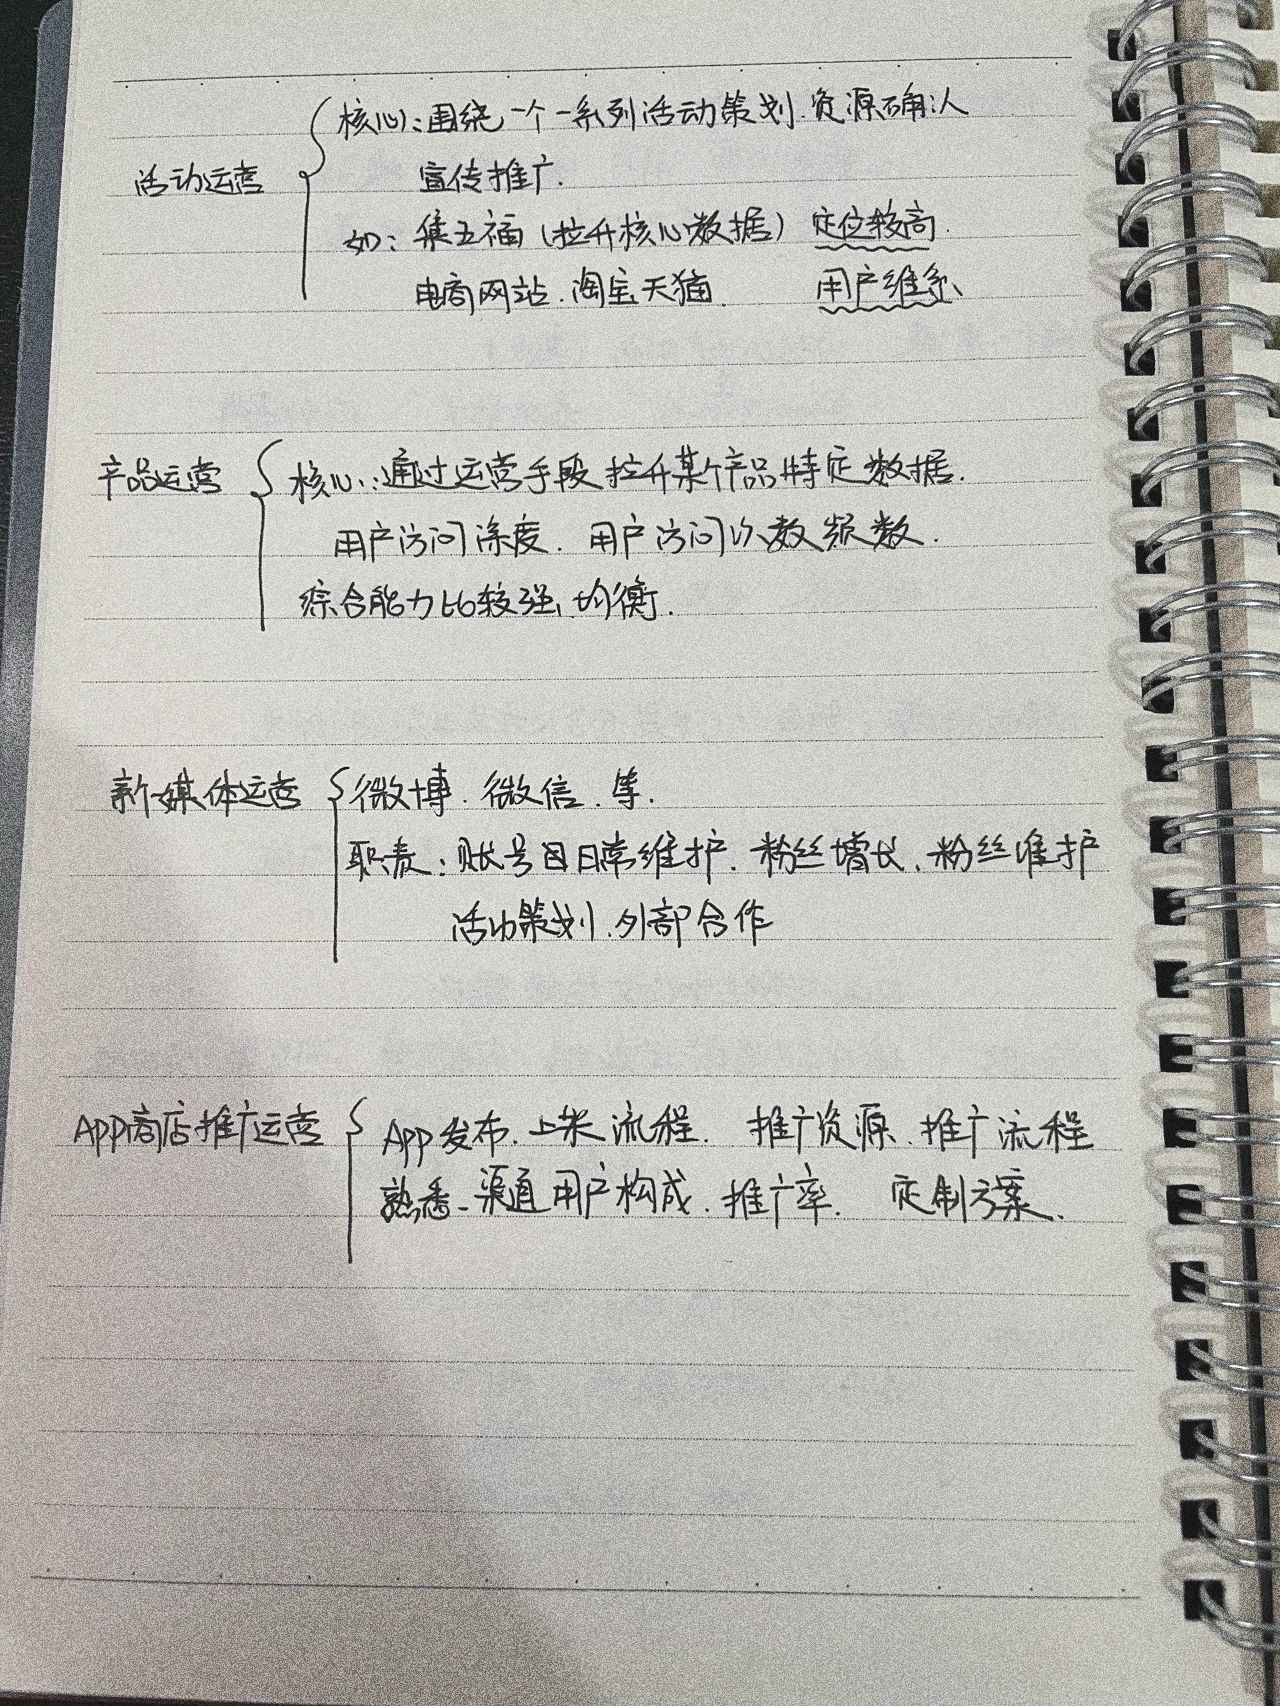 活动运营
核心:围绕一个一系列活动策划.资源确认
宣传推广.
如:集五福(拉升核心数据) 定位较高.
电商网站.淘宝天猫. 用户维系、
产品运营
核心:通过运营手段拉升某个产品特定数据.
用户访问深度. 用户访问次数频数.
综合能力比较强、均衡.
新媒体运营
微博. 微信. 等.
职责:账号日常维护. 粉丝增长、粉丝维护
活动策划.外部合作
App商店推广运营
App发布.上架流程. 推广资源、推广流程
熟悉-渠道用户构成. 推广率. 定制方案.